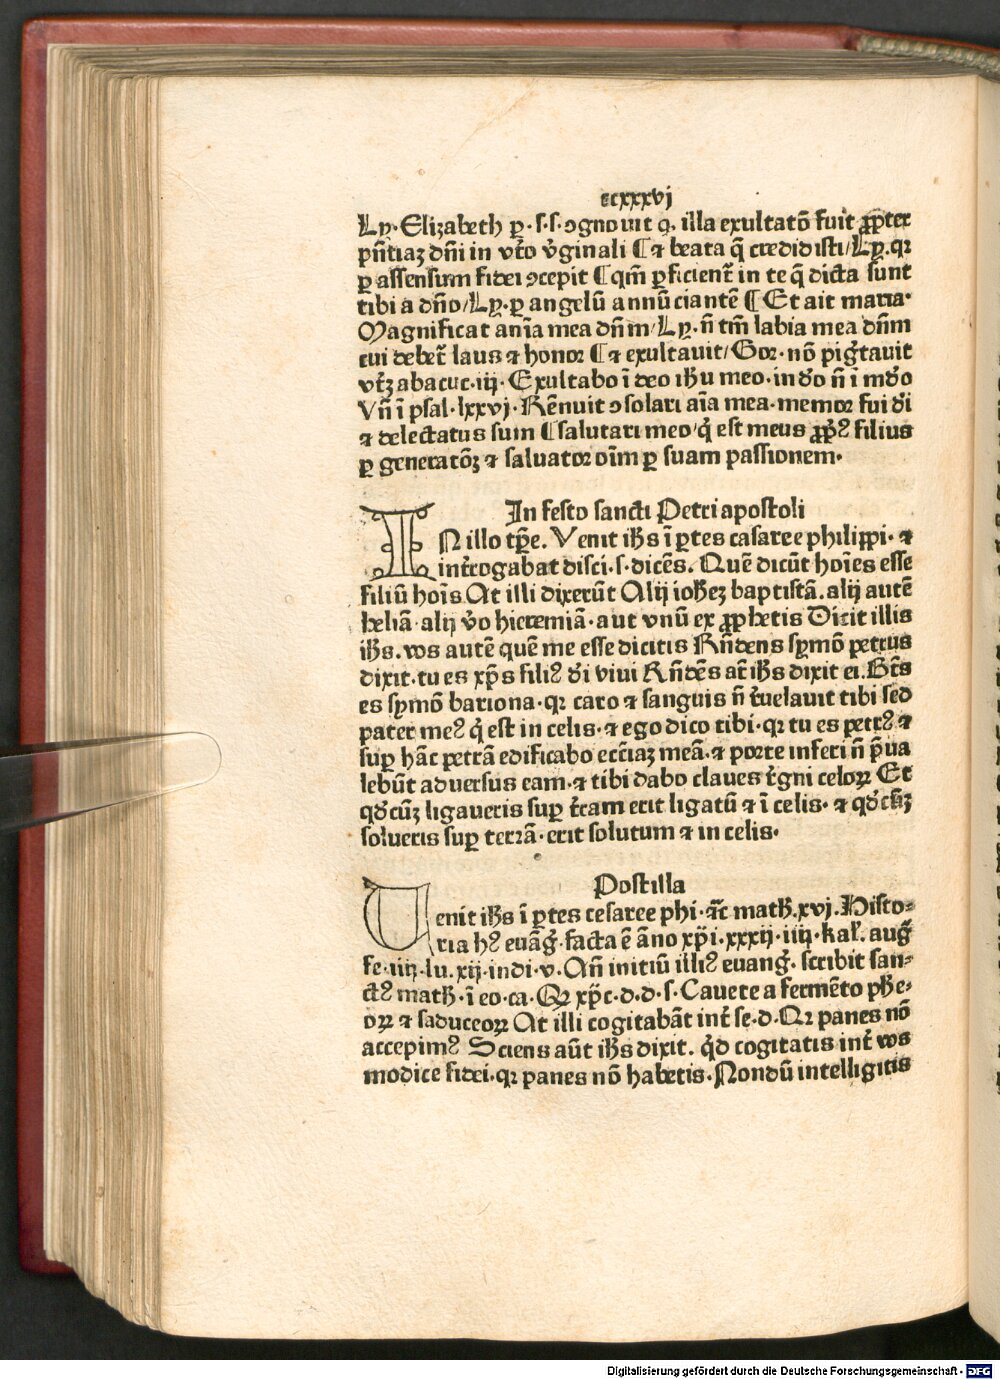 ccxxxvj
Ly. Elizabeth ꝑ .s.s. ꝯgnouit ꝙ illa exultatõ fuit ꝓpter
pñtiaz dñi in vt̾o v̾ginali ⁊ beata q̃ credidisti/Ly. qꝛ
ꝑ assensum fidei ꝯcepit qm̃ ꝑficient̾ in te q̃ dicta sunt
tibi a dño/Ly. ꝑ angelũ annũciantẽ Et ait maria.
Magnificat anĩa mea dñm/Ly. ñ tm̃ labia mea dñm
cui debet̾ laus ⁊ honor ⁊ exultauit/Gor. nõ pig̾tauit
vt̾z abacuc. iij. Exultabo ĩ deo ihu meo. in d̾o ñ ĩ mõo
Vñ ĩ psal. lxxvj. Rẽnuit ꝯsolari aĩa mea. memor fui d̾i
⁊ delectatus sum salutari meo/q̾ est meus ꝓpꝰ filius
ꝑ generatõz ⁊ saluator oĩm ꝑ suam passionem.
In festo sancti Petri apostoli
IN illo tpe. Venit ihs ĩ ꝑtes cesaree philippi. ⁊
int̾rogabat disci. s. dicẽs. Quẽ dicũt hoĩes esse
filiũ hoĩs At illi dixerũt Alij iohez baptistã. alij autẽ
heliã. alij v̾o hieremiã. aut vnũ ex ꝓphetis Dicit illis
ihs. vos autẽ quẽ me esse dicitis Rñdens symõ petrus
dixit. tu es xp̃s filiꝰ d̾i viui Rñdẽs at̃ ihs dixit ei. Bt̃s
es symõ bariona. qꝛ caro ⁊ sanguis ñ r̾uelauit tibi sed
pater meꝰ q̾ est in celis. ⁊ ego dico tibi. qꝛ tu es petrꝰ ⁊
suꝑ hãc petrã edificabo eccĩaz meã. ⁊ porte inferi ñ p̃ua
lebũt aduersus eam. ⁊ tibi dabo claues r̾gni celoꝝ Et
qd̾cũz ligaueris suꝑ t̾ram erit ligatũ ⁊ ĩ celis. ⁊ qd̾cũz
solueris suꝑ terrã. erit solutum ⁊ in celis.
Postilla
Venit ihs ĩ ꝑtes cesaree phi. ⁊c̃ math. xvj. Histo⸗
ria hꝰ euãg̾. facta ẽ ãno xp̃i. xxxij. iiij. kal. aug̾
fe. iiij. lu. xij. indi. v. An̄ initiũ illiꝰ euang̾. scribit san⸗
ctꝰ math. ĩ eo. ca. Qꝛ xp̃c. d. d. s. Cauete a fermẽto phe⸗
oꝝ ⁊ saduceoꝝ At illi cogitabãt int̾ se. d. Qꝛ panes nõ
accepimꝰ Sciens aũt ihs dixit. q̾d cogitatis int̾ vos
modice fidei. qꝛ panes nõ habetis. Nondũ intelligitis
Digitalisierung gefördert durch die Deutsche Forschungsgemeinschaft - DFG